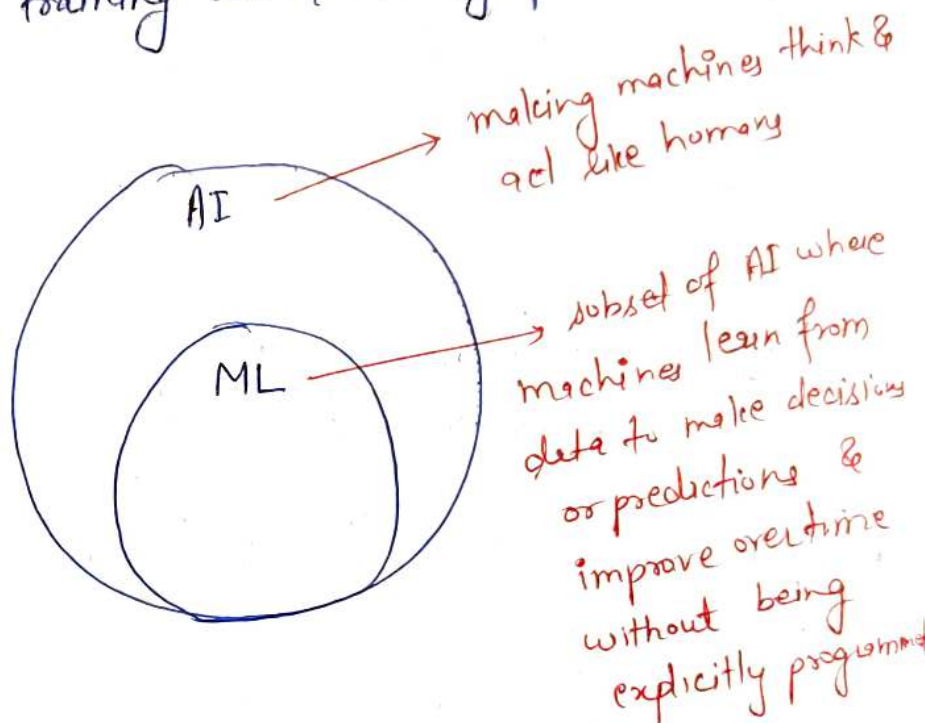 training
AI
making machines think &
act like humans
ML
subset of AI where
machines learn from
data to make decisions
or predictions &
improve overtime
without being
explicitly